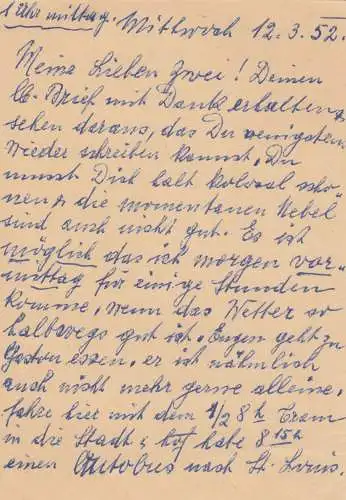 1 Uhr mittag. Mittwoch 12.3.52.
Meine Lieben Zwei! Deinen
lb. Brief mit Dank erhalten,
sehen daraus, das Du wenigstens
wieder schreiben kannst, Du
musst Dich halt kolossal scho-
nen, die momentanen Nebel
sind auch nicht gut. Es ist
möglich das ich morgen vor-
mittag für einige Stunden
komme, wenn das Wetter so
halbwegs gut ist, Eugen geht zu
Gaston essen, er ist nähmlich
auch nicht mehr gerne alleine,
fahre hier mit dem 1/2 8 h Tram
in die Stadt & habe 8 15 h
einen Autobus nach St. Louis.